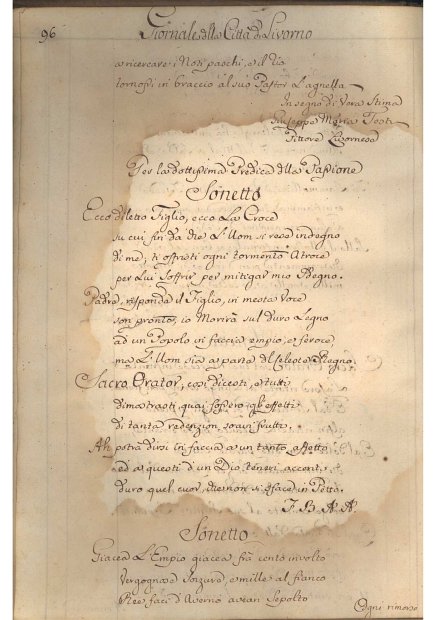 96 Giornale della Città di Livorno
a ricercare i Noti paschi, e il Rio
tornossi in braccio al suo Pastor L'agnella
In segno di Vera Stima
Giuseppe Maria
Pittore Livornese
Per la dottissima Predica della Passione
Sonetto
Ecco diletto Figlio, ecco La Croce
su cui fin da che L'Uom si rese indegno
di me, ti offristi ogni tormento Atroce
per Lui soffrir per mitigar mio
Padre, risponda il Figlio, in mesta Voce
son pronto, io Morirà sul duro Legno
ad un Popolo in faccia empio, e feroce,
ma L'Uom sia a parte del Celeste Regno.
Sacro Orator, così dicesti, e tutti
dimostrasti, quai fossero gli effetti
di tanta redenzion, soavi frutti,
Ah potrà dirsi in faccia a un tanto affetto
ed a questi d'un Dio, teneri accenti,
duro quel cuor, che non si sface in Petto.
Sonetto
Giacea L'Empio giacea frà cento involto
Vergogna e mille al fianco
Ree faci d'Averno avean Sepolto
Ogni rimorso